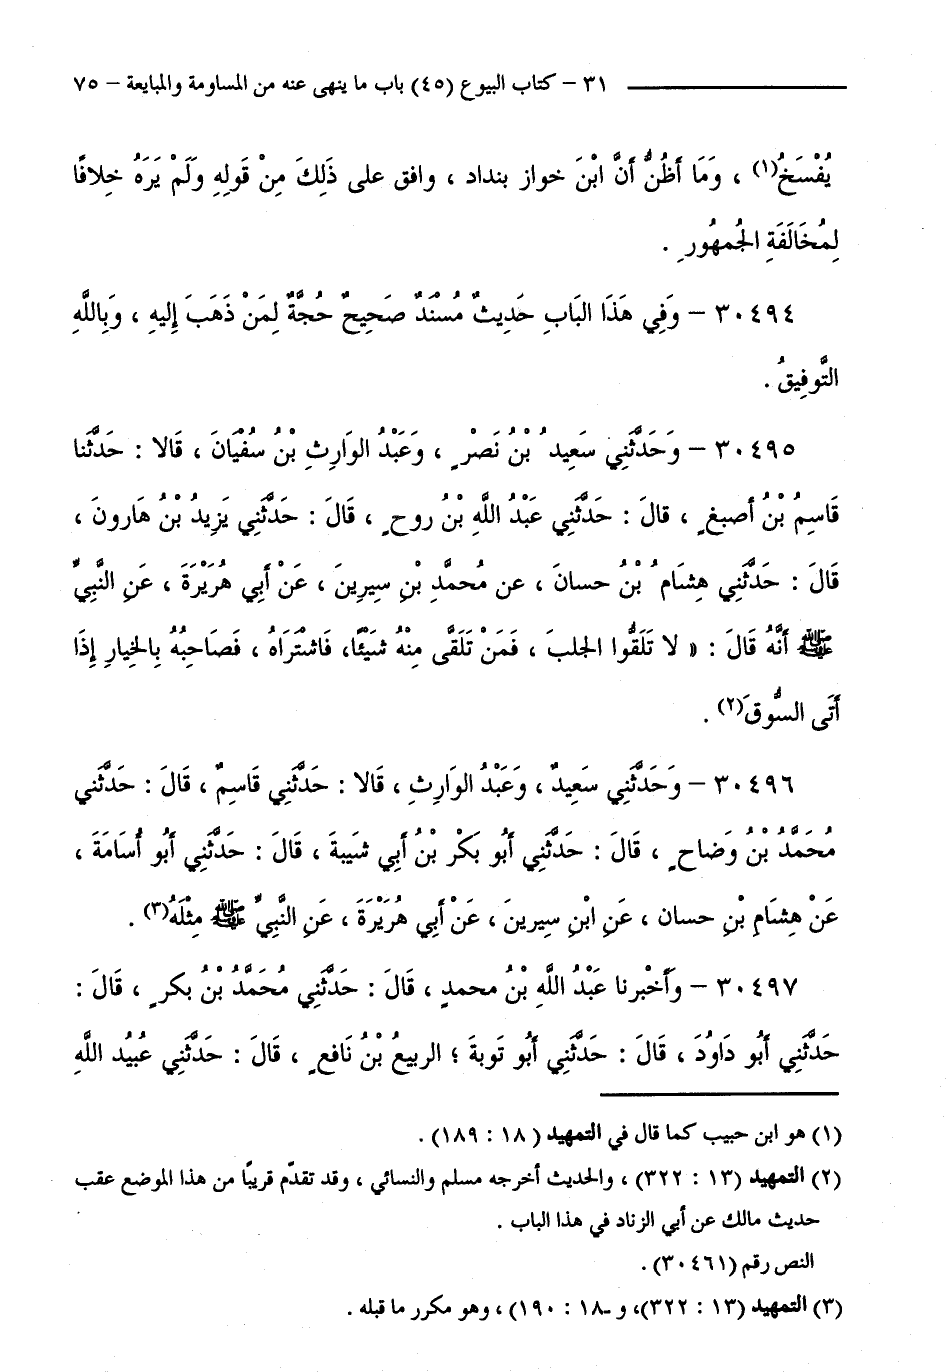 ٣١ – كتاب البيوع (٤٥) باب ما ينهى عنه من المساومة والمبايعة – ٧٥
يُفْسَخُ(١) ، وَمَا أَظُنُّ أَنَّ ابْنَ خواز بنداد ، وافق على ذَلِكَ مِنْ قَولِهِ وَلَمْ يَرَهُ خِلافًا
لِمُخَالَفَةِ الجُمهُورِ .
٣٠٤٩٤ – وَفِي هَذَا البَابِ حَدِيثٌ مُسْنَدٌ صَحِيحٌ حُجَّةٌ لِمَنْ ذَهَبَ إِليهِ ، وَبِاللَّهِ
التَّوفِيقُ .
٣٠٤٩٥ – وَحَدَّثَنِي سَعِيدُ بْنُ نَصْرٍ ، وَعَبْدُ الوَارِثِ بْنُ سُفْيَانَ ، قَالا : حَدَّثَنا
قَاسِمُ بْنُ أصبغٍ ، قالَ : حَدَّثَنِي عَبْدُ اللَّهِ بْنُ روحٍ ، قَالَ : حَدَّثَنِي يَزِيدُ بْنُ هَارونَ ،
قَالَ : حَدَّثَنِي هِشَامُ بْنُ حسانَ ، عن مُحمَّدِ بْنِ سِيرِينَ ، عَنْ أَبِي هُرَيْرَةَ ، عَنِ النَّبِيِّ
ﷺ أَنَّهُ قَالَ : « لا تَلَقُّوا الجلبَ ، فَمَنْ تَلَقَّى مِنْهُ شَيْئًا، فَاشْتَرَاهُ ، فَصَاحِبُهُ بِالخِيارِ إِذَا
أَتَى السُّوقَ(٢) .
٣٠٤٩٦ – وَحَدَّثَنِي سَعِيدٌ ، وَعَبْدُ الوَارِثِ ، قَالا : حَدَّثَنِي قَاسِمٌ ، قَالَ : حَدَّثَنِي
مُحَمَّدُ بْنُ وَضاحٍ ، قَالَ : حَدَّثَنِي أَبُو بَكْرِ بْنُ أَبِي شَيبةَ ، قَالَ : حَدَّثَنِي أَبُو أُسَامَةَ ،
عَنْ هِشَامِ بْنِ حسان ، عَنِ ابْنِ سِيرينَ ، عَنْ أَبِي هُرَيْرَةَ ، عَنِ النَّبِيِّ ﷺ مِثْلَهُ(٣) .
٣٠٤٩٧ – وَأَخْبرنا عَبْدُ اللَّهِ بْنُ محمدٍ ، قَالَ : حَدَّثَنِي مُحَمَّدُ بْنُ بكرٍ ، قَالَ :
حَدَّثَنِي أَبُو دَاوُدَ ، قَالَ : حَدَّثَنِي أَبُو تَوبةَ ؛ الربيعُ بْنُ نَافعٍ ، قَالَ : حَدَّثَنِي عُبيدُ اللَّهِ
(١) هو ابن حبيب كما قال في التمهيد (١٨ : ١٨٩) .
(٢) التمهيد (١٣ : ٣٢٢) ، والحديث أخرجه مسلم والنسائي ، وقد تقدّم قريبًا من هذا الموضع عقب
حديث مالك عن أبي الزناد في هذا الباب .
النص رقم (٣٠٤٦١) .
(٣) التمهيد (١٣ : ٣٢٢)، و ـ١٨ : ١٩٠) ، وهو مكرر ما قبله .